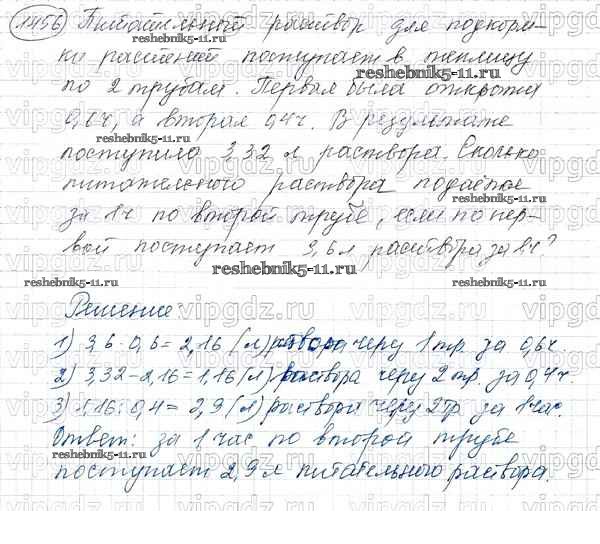 1456 Питательный раствор для подкорм-
ки растений поступает в теплицу
reshebnik5-11.ru
по 2 трубам. Первая была открыта
0,6 ч, а вторая 0,4 ч. В результате
reshebnik5-11.ru
поступило 3,32 л раствора. Сколько
питательного раствора подавалось
за 1 ч по второй трубе, если по пер-
reshebnik5-11.ru
вой поступает 3,6 л раствора за 1 ч?
reshebnik5-11.ru
reshebnik5-11.ru
reshebnik5-11.ru
Решение
1) 3,6 · 0,6 = 2,16 (л) раствора через 1 тр за 0,6 ч.
2) 3,32 - 2,16 = 1,16 (л) раствора через 2 тр за 0,4 ч.
3) 1,16 : 0,4 = 2,9 (л) раствора через 2 тр за 1 час.
Ответ: за 1 час по второй трубе
reshebnik5-11.ru
поступает 2,9 л питательного раствора.
vipgdz